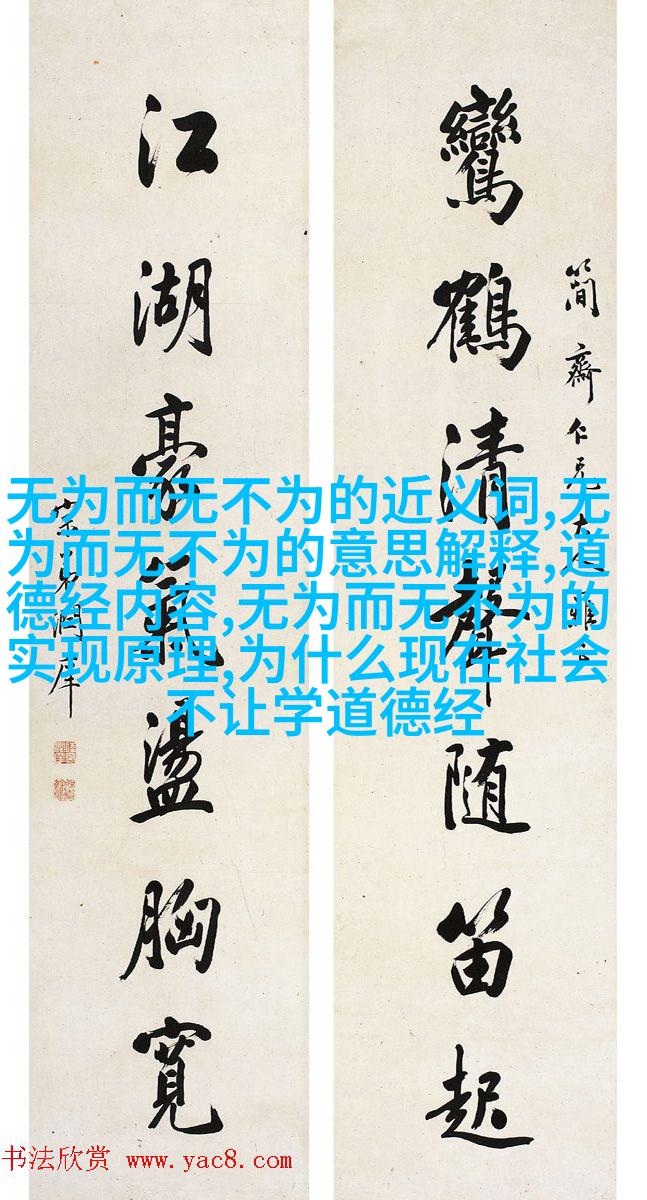 簡齋仁兄大人雅令
鸞鶴清聲隨笛起
江湖豪氣盪胸寬
无为而无不为的近义词,无
为而无不为的意思解释,道
德经内容,无为而无不为的
实现原理,为什么现在社会
不让学道德经
书法欣赏 www.yac8.com